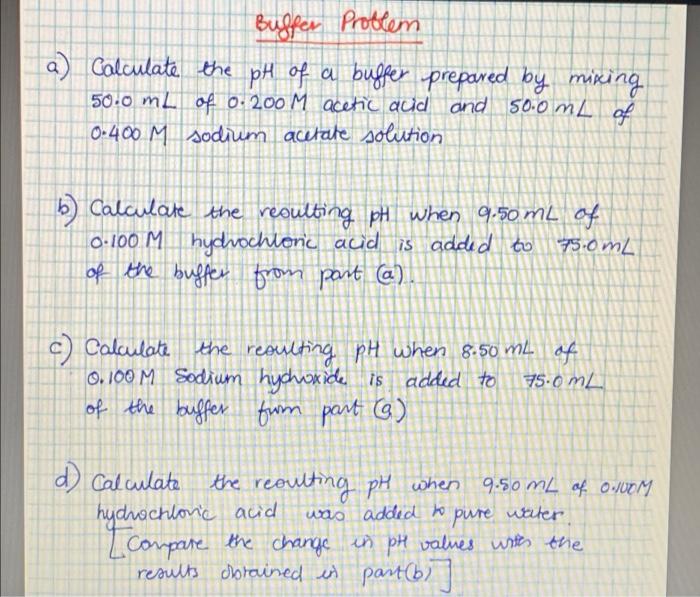 Buffer Problem
a) Calculate the pH of a buffer prepared by mixing
50.0 mL of 0.200 M acetic acid and 50.0 mL of
0.400 M sodium acetate solution
b) Calculate the resulting pH when 9.50 mL of
0.100 M hydrochloric acid is added to 75.0 mL
of the buffer from part (a).
c) Calculate the resulting pH when 8.50 mL of
0.100 M Sodium hydroxide is added to 75.0 mL
of the buffer from part (a)
d) Calculate the resulting pH when 9.50 mL of 0.100M
hydrochloric acid was added to pure water.
[Compare the change in pH values with the
results obtained in part(b)]